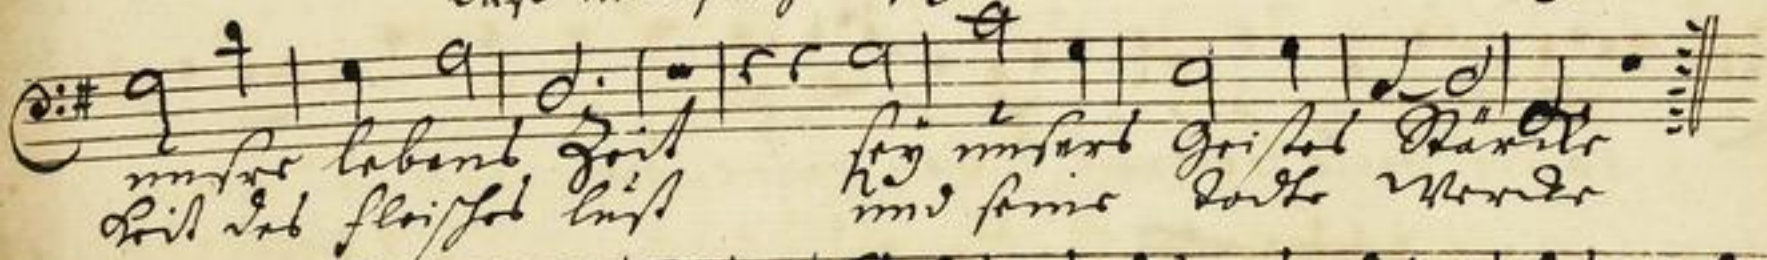 unsre lebens Zeit sey unsers Geistes Stärcke
Leid des fleisches lust und seine todte Wercke